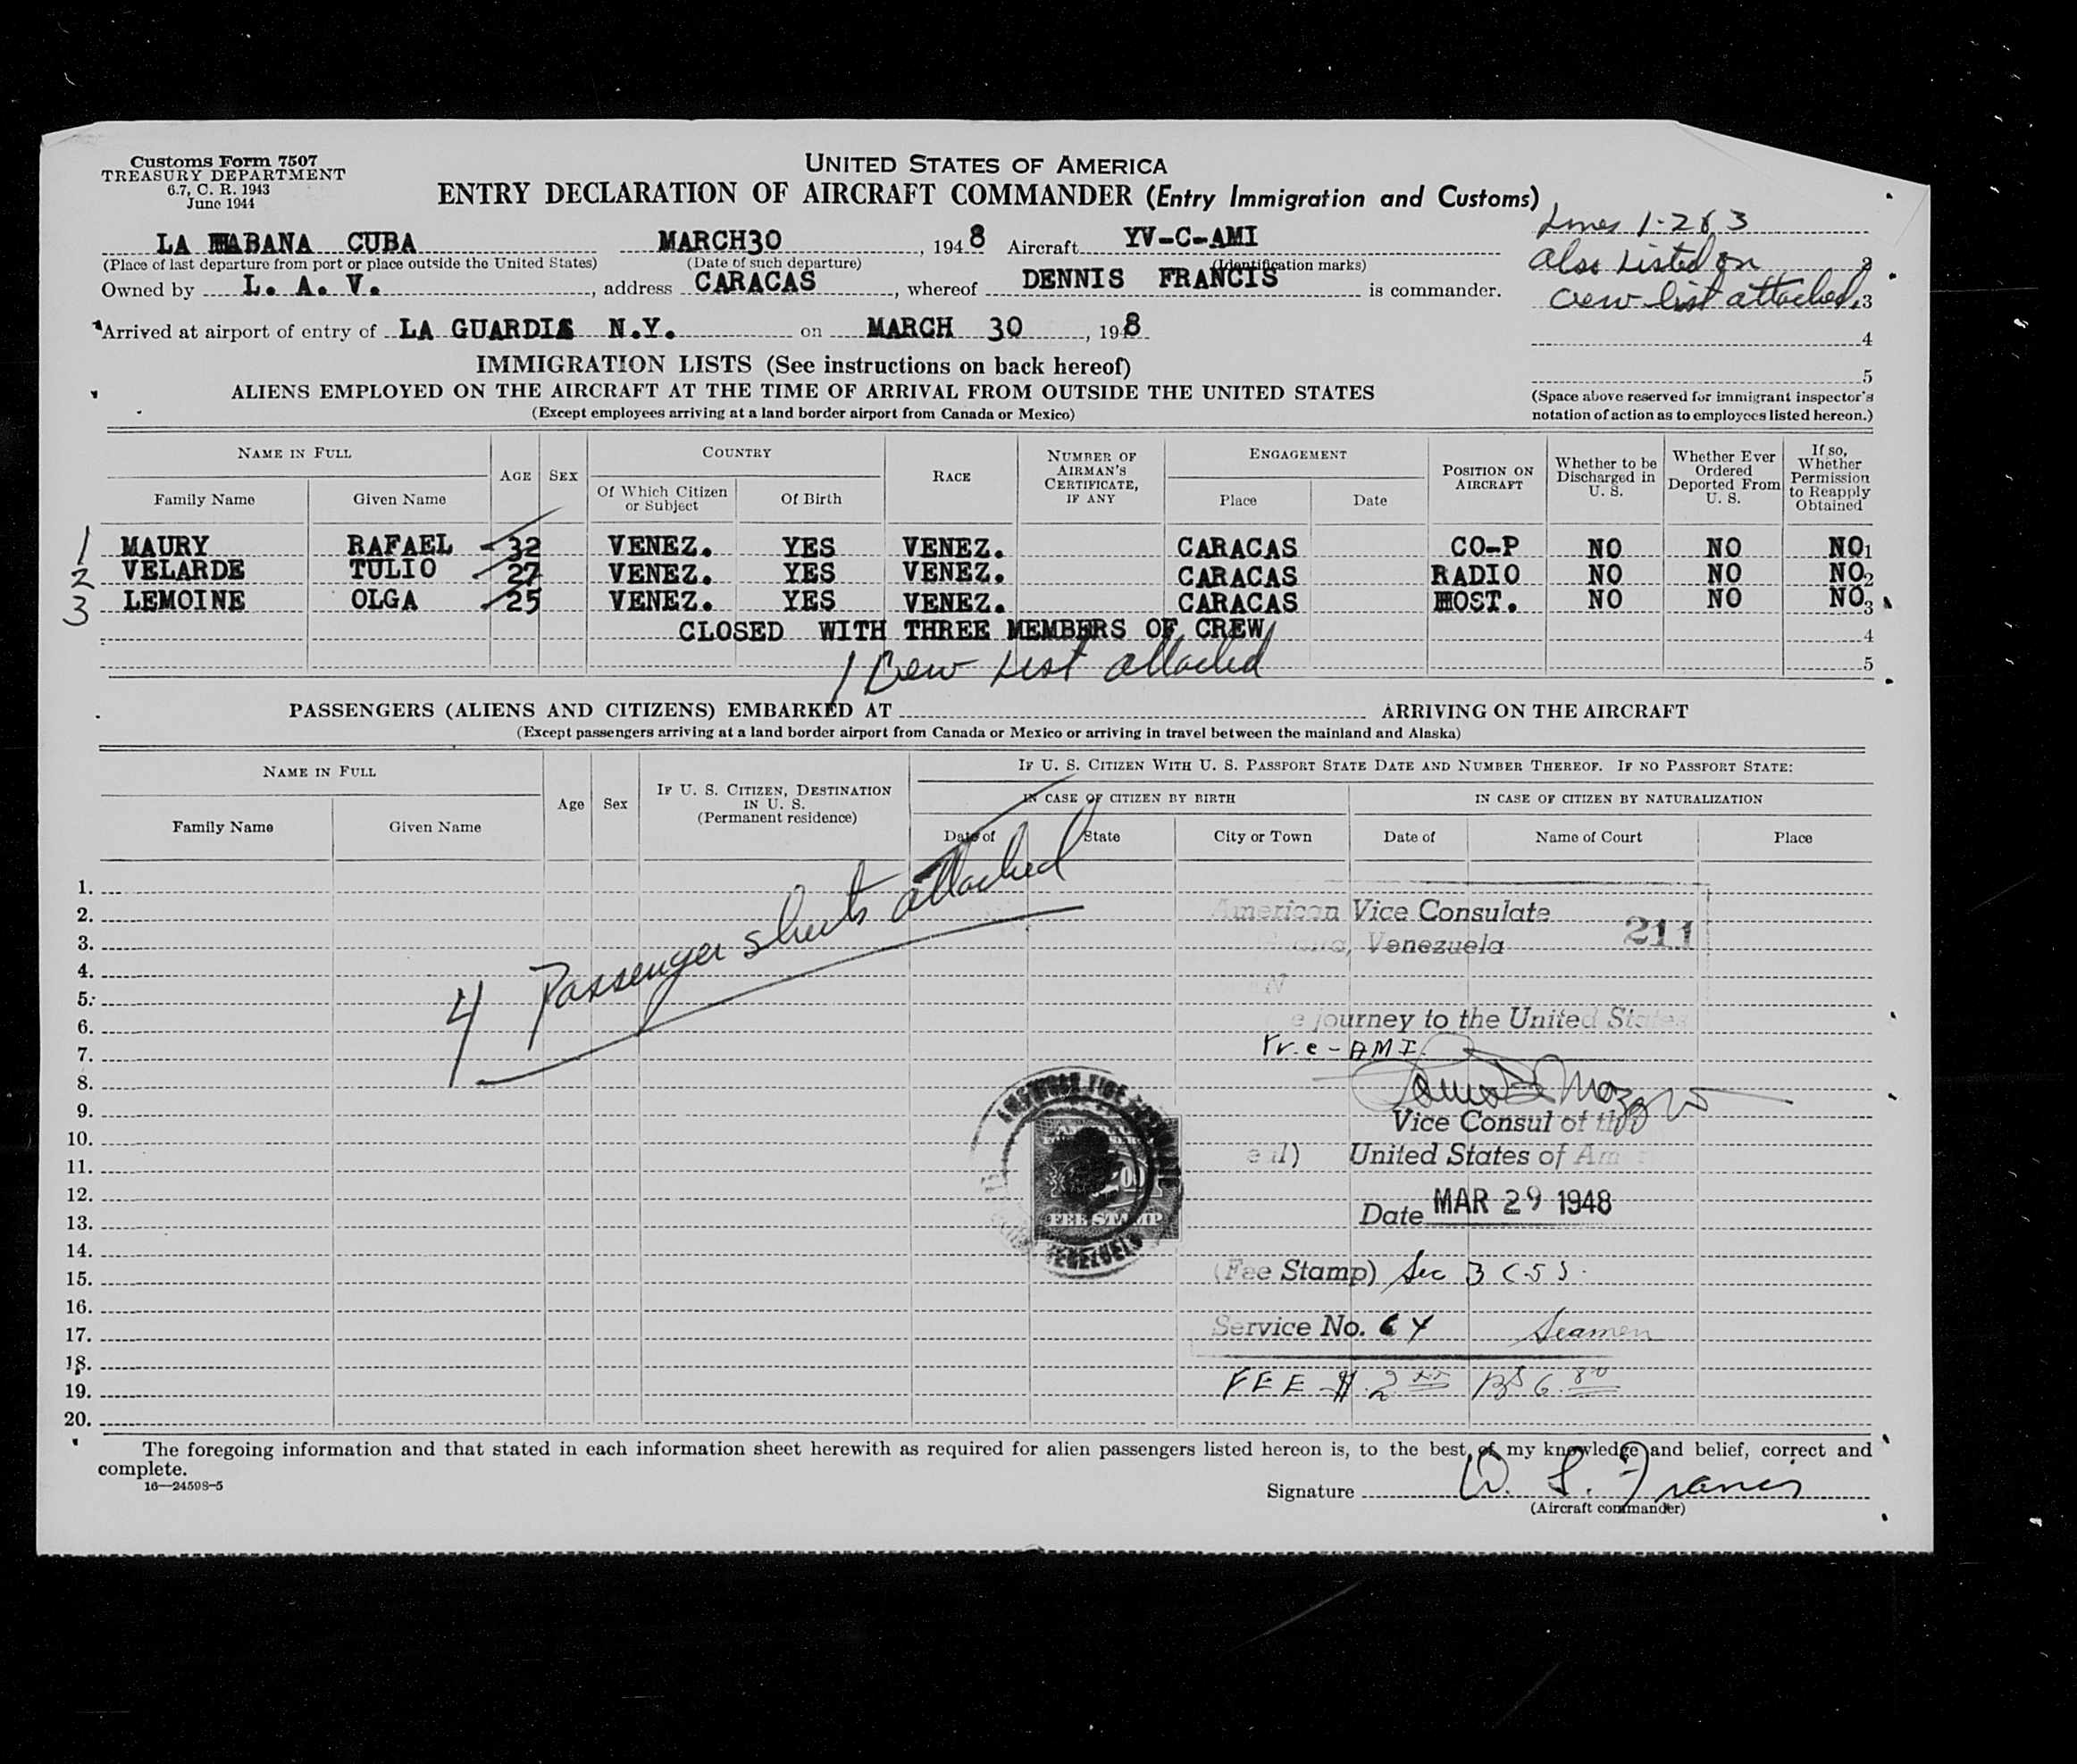 Customs Form 7507
TREASURY DEPARTMENT
6.7, C. R. 1943
June 1944
UNITED STATES OF AMERICA
ENTRY DECLARATION OF AIRCRAFT COMMANDER (Entry Immigration and Customs)
Lines 1-2&3
also Listed on 2
crew list attached. 3
4
5
(Space above reserved for immigrant inspector's
notation of action as to employees listed hereon.)
LA HABANA CUBA MARCH30, 1948 Aircraft YV-C-AMI
(Place of last departure from port or place outside the United States) (Date of such departure) (Identification marks)
Owned by L. A. V., address CARACAS, whereof DENNIS FRANCIS is commander.
Arrived at airport of entry of LA GUARDIA N.Y. on MARCH 30, 1948
IMMIGRATION LISTS (See instructions on back hereof)
ALIENS EMPLOYED ON THE AIRCRAFT AT THE TIME OF ARRIVAL FROM OUTSIDE THE UNITED STATES
(Except employees arriving at a land border airport from Canada or Mexico)
NAME IN FULL
Family Name Given Name
AGE SEX
COUNTRY
Of Which Citizen or Subject Of Birth
RACE
NUMBER OF AIRMAN'S CERTIFICATE, IF ANY
ENGAGEMENT
Place Date
POSITION ON AIRCRAFT
Whether to be Discharged in U. S.
Whether Ever Ordered Deported From U. S.
If so, Whether Permission to Reapply Obtained
1 MAURY RAFAEL 32 VENEZ. YES VENEZ. CARACAS CO-P NO NO NO 1
2 VELARDE TULIO 27 VENEZ. YES VENEZ. CARACAS RADIO NO NO NO 2
3 LEMOINE OLGA 25 VENEZ. YES VENEZ. CARACAS HOST. NO NO NO 3
CLOSED WITH THREE MEMBERS OF CREW 4
1 Crew List attached 5
PASSENGERS (ALIENS AND CITIZENS) EMBARKED AT ARRIVING ON THE AIRCRAFT
(Except passengers arriving at a land border airport from Canada or Mexico or arriving in travel between the mainland and Alaska)
NAME IN FULL
Family Name Given Name
Age Sex
IF U. S. CITIZEN, DESTINATION IN U. S.
(Permanent residence)
IF U. S. CITIZEN WITH U. S. PASSPORT STATE DATE AND NUMBER THEREOF. IF NO PASSPORT STATE:
IN CASE OF CITIZEN BY BIRTH IN CASE OF CITIZEN BY NATURALIZATION
Date of State City or Town Date of Name of Court Place
1.
2. American Vice Consulate 211
3. Venezuela
4.
5.
6. journey to the United States
7. AMI
8.
9. Vice Consul of the
10.
11. United States of
12.
13. Date MAR 29 1948
14.
15. (Fee Stamp) Sec 3
16.
17. Service No. 64 Seamen
18.
19. FEE $ 2 BS 6.80
20.
4 Passenger sheets attached
FEE STAMP
VENEZUELA
The foregoing information and that stated in each information sheet herewith as required for alien passengers listed hereon is, to the best of my knowledge and belief, correct and
complete.
16—24598-5
Signature D. S. Francis
(Aircraft commander)